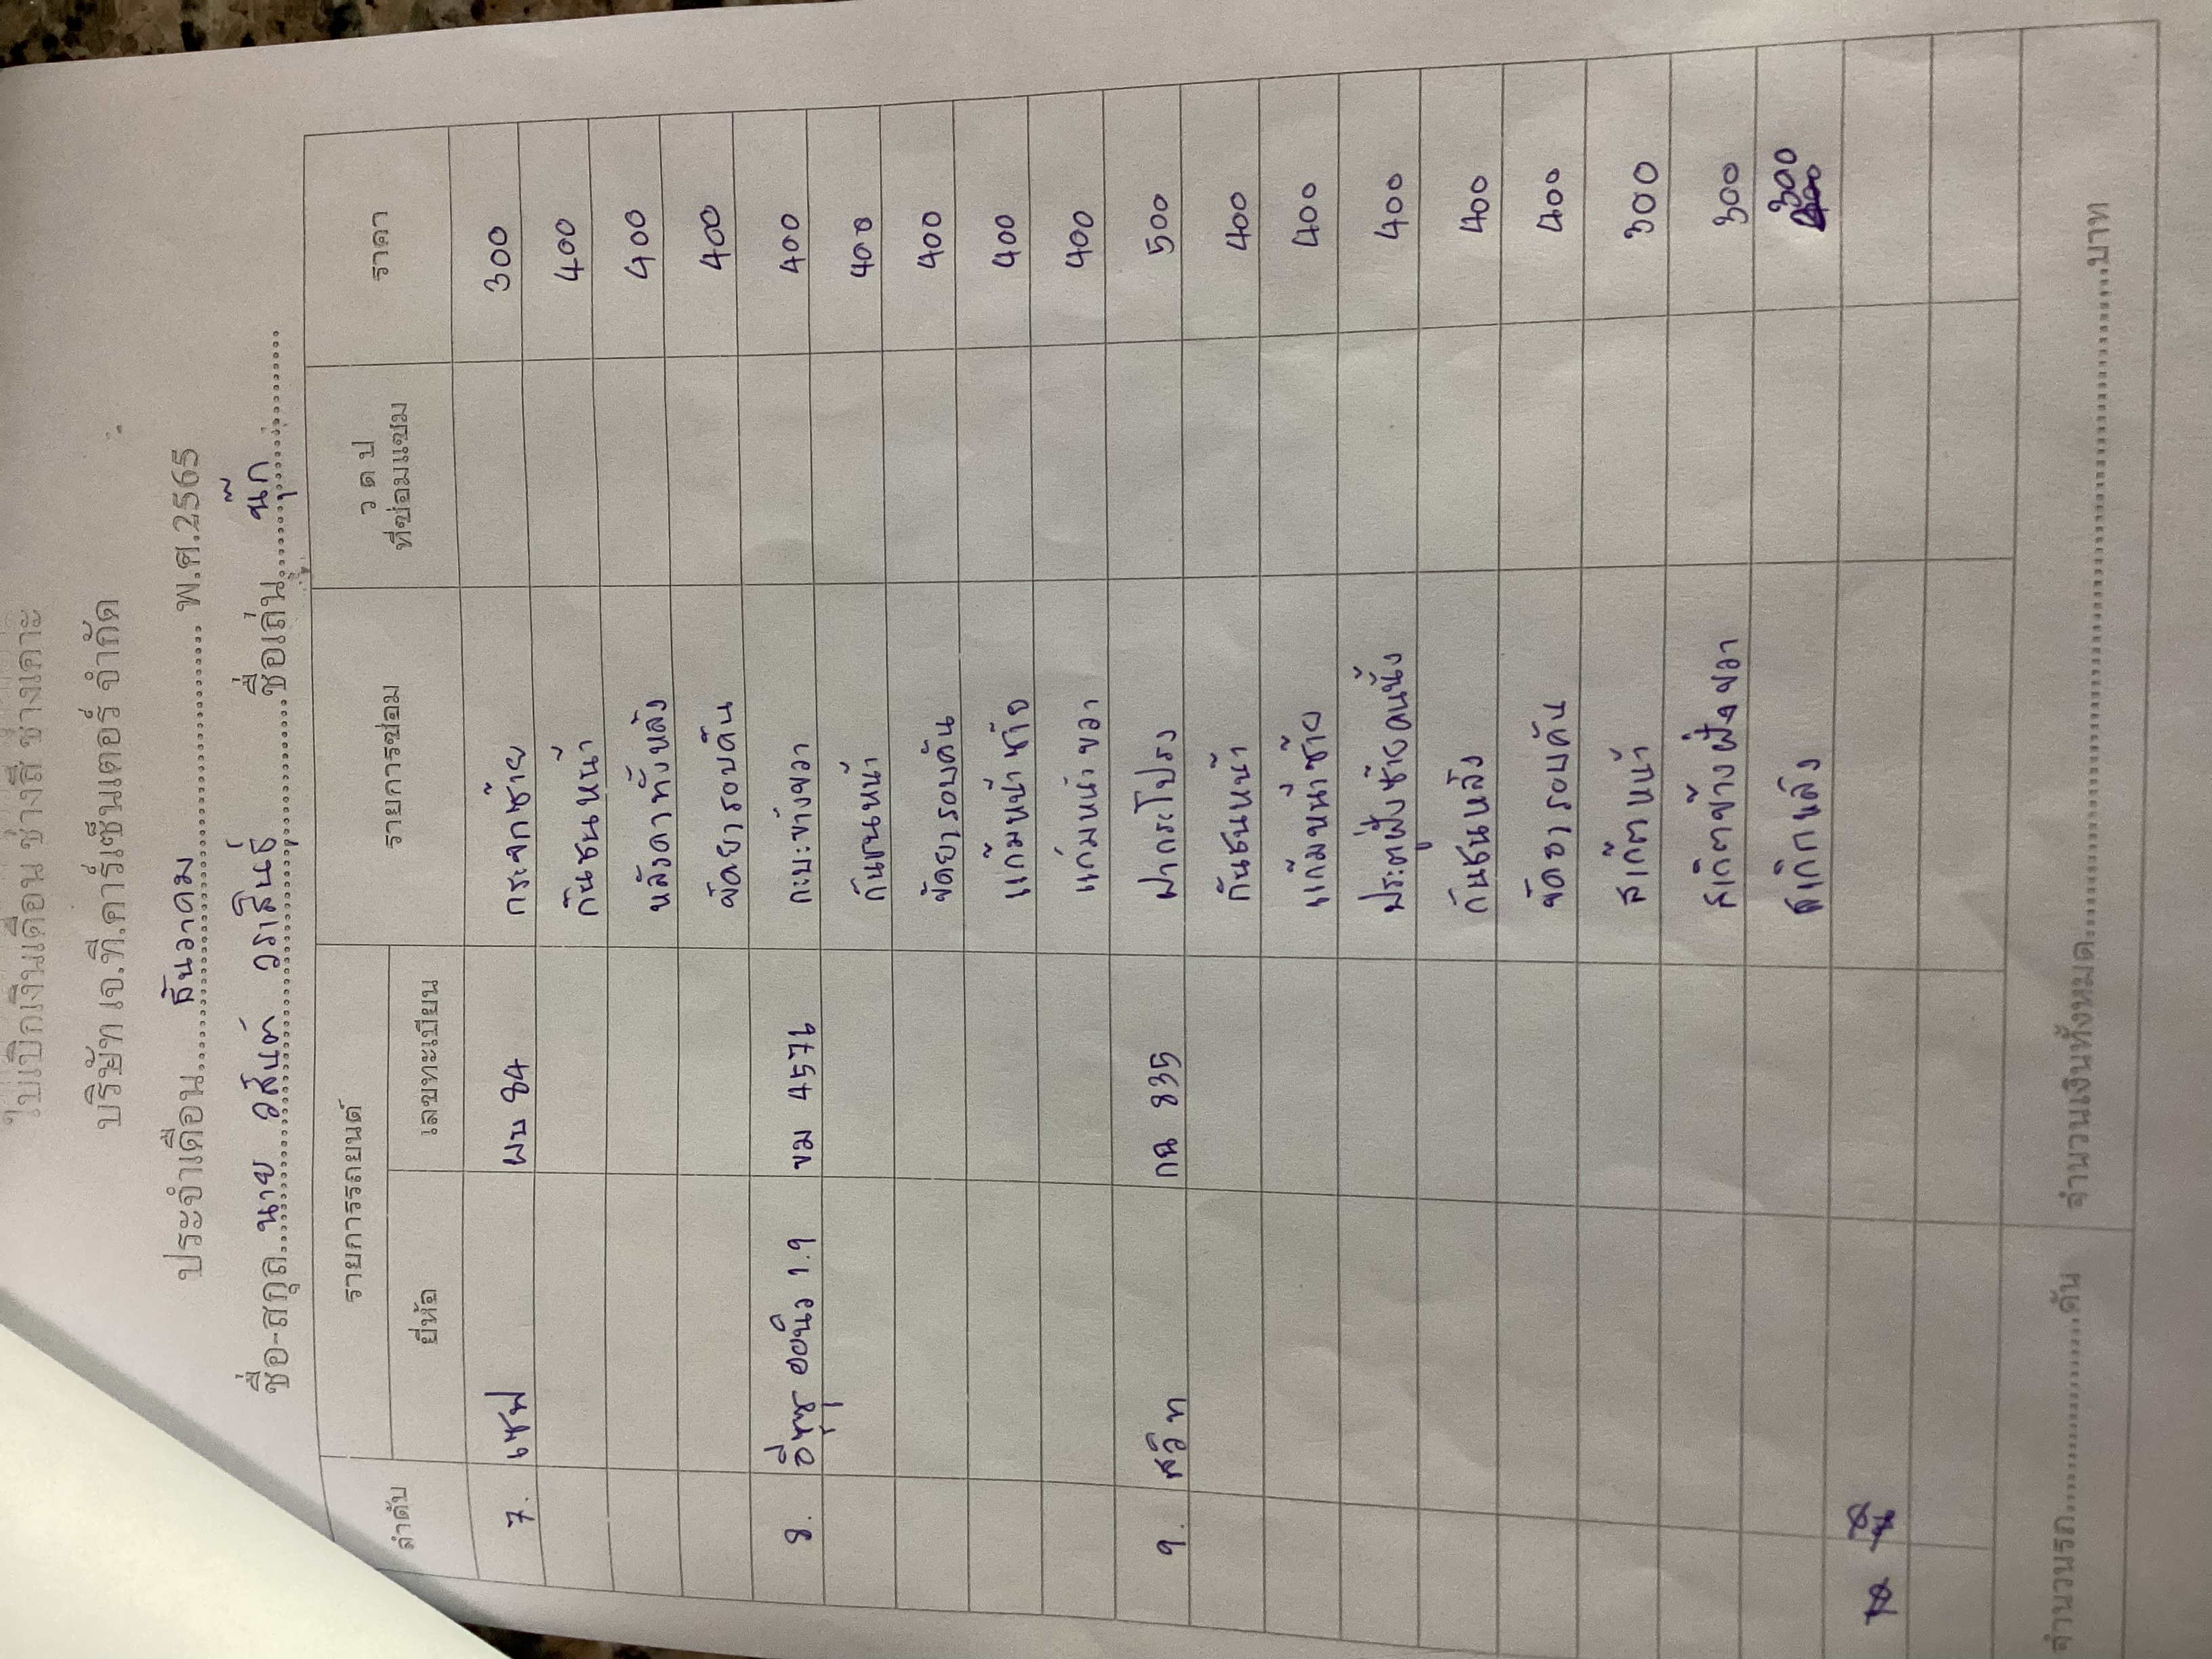 ใบเบิกเงินเดือน ช่างสี ช่างเคาะ
บริษัท เจ.ที.คาร์เซ็นเตอร์ จำกัด
ประจำเดือน......ธันวาคม...... พ.ศ.2565
ชื่อ-สกุล...นาย วสันต์ วราสินธุ์......ชื่อเล่น......นุ๊ก......
ลำดับ รายการรถยนต์ รายการซ่อม ว ด ป ที่ซ่อมแซม ราคา
ยี่ห้อ เลขทะเบียน
7. เชฟ ผบ 84 กระจกซ้าย 300
กันชนหน้า 400
หลังคาทั้งหลัง 400
ขัดยารอบคัน 400
8. อีซูซุ ออนิว 1.9 ขม 4576 กะบะข้างขวา 400
กันชนหน้า 400
ขัดยารอบคัน 400
แก้มหน้าซ้าย 400
แก้มหน้าขวา 400
9. สวิท กฉ 835 ฝากระโปรง 500
กันชนหน้า 400
แก้มหน้าซ้าย 400
ประตูฝั่งซ้ายคนนั่ง 400
กันชนหลัง 400
ขัดยารอบคัน 400
สเกิตหน้า 300
สเกิตข้างฝั่งขวา 300
สเกิทหลัง 300
จำนวนรถ......คัน จำนวนเงินทั้งหมด......บาท